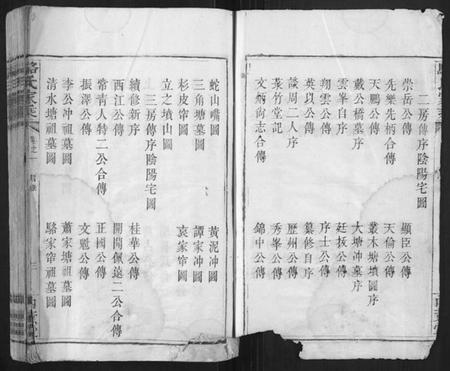 二房傳序陰陽宅圖
崇岳公傳　顯臣公傳
先樂先柄合傳　天倫公傳
天鵬公傳　叢木塘墳圖序
戴公橋墓序　大塘冲墓序
雲峯自序　廷掞公傳
翔雲公傳　序士公傳
英以公傳　纂修自序
談周二人序　歷州公傳
茶竹堂記　秀峯公傳
文炳尚志合傳　錦中公傳
蛇山嘴圖　黃泥冲圖
三角塘墓圖　譚家冲圖
杉皮窂圖　袁家窂圖
立之墳山圖
三房傳序陰陽宅圖
續修新序　桂華公傳
西江公傳　開蘭佩遠二公合傳
常青人特二公合傳　正國公傳
振澤公傳　文魁公傳
李公冲祖墓圖　蕭家塘祖墓圖
清水塘祖墓圖　駱家窂祖墓圖
駱氏家乘